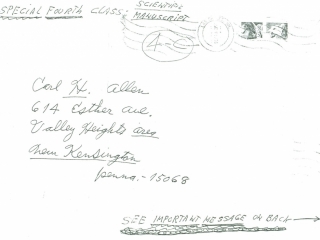 SPECIAL FOURTH CLASS: SCIENTIFIC
MANUSCRIPT
Carl H. Allen
614 Esther Ave.
Valley Heights area
New Kensington
Penna.-15068
SEE IMPORTANT MESSAGE ON BACK